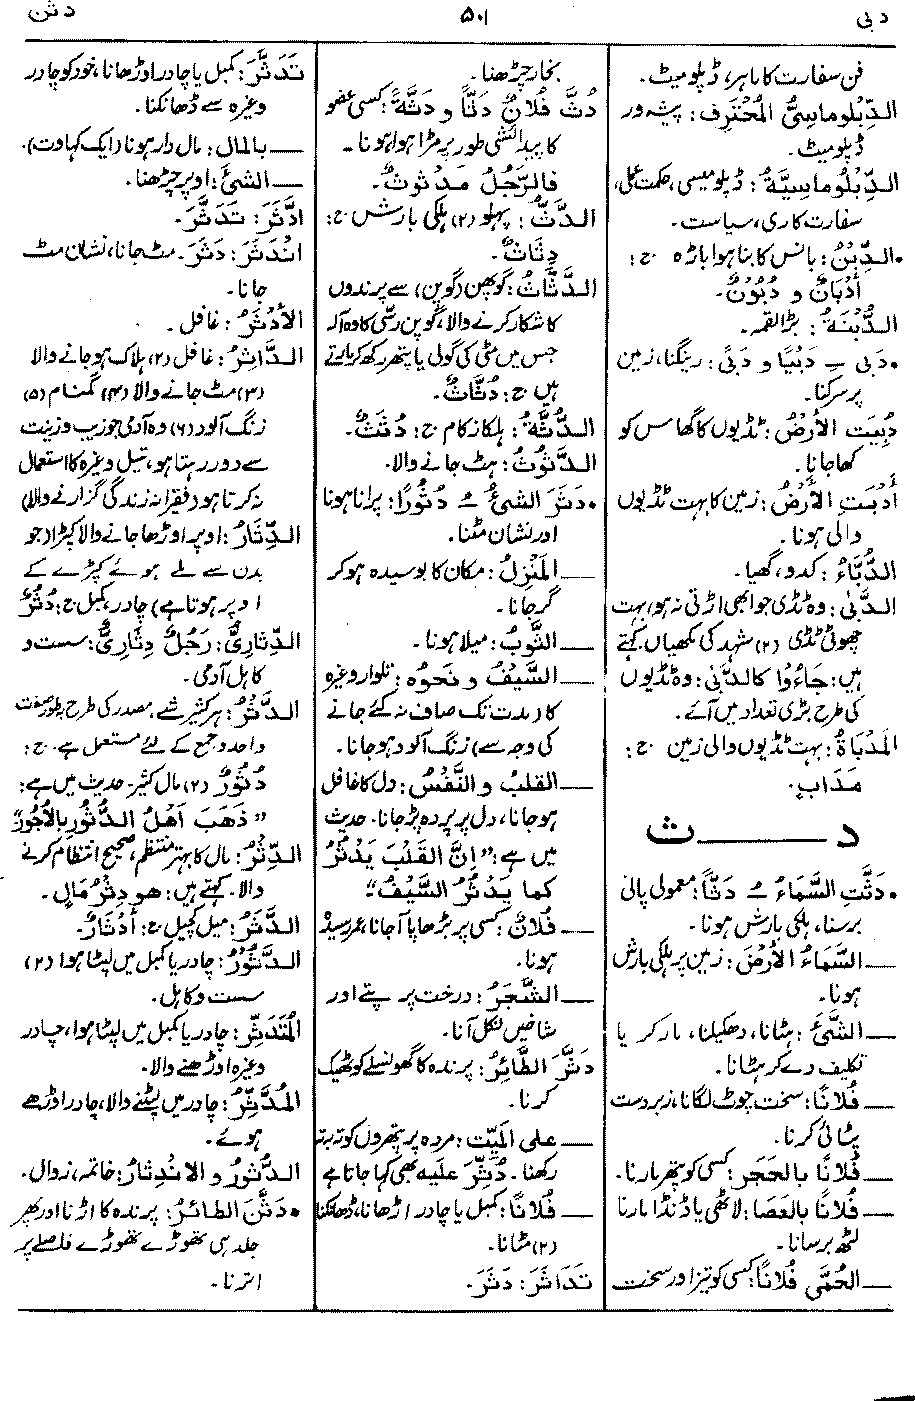 د بی
۵۰۱
دثن
فن سفارت کا ماہر، ڈپلومیٹ۔
الدِّبلُوماسِیُّ المُحْتَرِف: پیشہ ور
ڈپلومیٹ۔
الدِّبْلُوماسِیَّةُ: ڈپلومیسی، حکمت عملی،
سفارت کاری، سیاست۔
•الدِّبْنُ: بانس کا بنا ہوا باڑہ ج:
أَدْبَانٌ و دُبُوْنٌ۔
الدُّبْنَةُ: بڑا لقمہ۔
•دَبیٰ ـِ دَبْیًا و دَبًی: رینگنا، زمین
پر سرکنا۔
دُبِیَتِ الأَرْضُ: ٹڈیوں کا گھاس کو
کھا جانا۔
أَدْبَتِ الأَرْضُ: زمین کا بہت ٹڈیوں
والی ہونا۔
الدُّبَّاءُ: کدو، گھیا۔
الدَّبیٰ: وہ ٹڈی جو ابھی اڑتی نہ ہو، بہت
چھوٹی ٹڈی (۲) شہد کی مکھیاں کہتے
ہیں: جَاءُوْا کَالدَّبیٰ: وہ ٹڈیوں
کی طرح بڑی تعداد میں آئے۔
المَدْبَاةُ: بہت ٹڈیوں والی زمین ج:
مَدَابٍ۔
د ــــــ ث
•دَثَّتِ السَّمَاءُ ـُ دَثًّا: معمولی پانی
برسنا، ہلکی بارش ہونا۔
ــــ السَّمَاءُ الأَرْضَ: زمین پر ہلکی بارش
ہونا۔
ــــ الشَّیْءَ: ہٹانا، دھکیلنا، مار کر یا
تکلیف دے کر ہٹانا۔
ــــ فُلَانًا: سخت چوٹ لگانا، زبردست
پٹائی کرنا۔
ــــ فُلَانًا بِالحَجَرِ: کسی کو پتھر مارنا۔
ــــ فُلَانًا بالعَصَا: لاٹھی یا ڈنڈا مارنا
لٹھ برسانا۔
ــــ الحُمّٰی فُلَانًا: کسی کو تیز اور سخت
بخار چڑھنا۔
دُثَّ فُلَانٌ دَثًّا و دَثَّةً: کسی عضو
کا پیدائشی طور پر مڑا ہوا ہونا ۔
فالرَّجُلُ مَدْثُوثٌ۔
الدَّثُّ: پہلو (۲) ہلکی بارش ج:
دِثَاثٌ۔
الدَّثَّاثُ: گوپھن (گوپن) سے پرندوں
کا شکار کرنے والا، گوپن رسّی کا وہ آلہ
جس میں مٹی کی گولی یا پتھر رکھ کر مارتے
ہیں ج: دُثَّاثٌ۔
الدُّثَّةُ: ہلکا زکام ج: دُثَثٌ۔
الدَّثُوْثُ: ہٹ جانے والا۔
•دَثَرَ الشَّیْءُ ـُ دُثُورًا: پرانا ہونا
اور نشان مٹنا۔
ــــ المَنْزِلُ: مکان کا بوسیدہ ہو کر
گر جانا۔
ــــ الثَّوبُ: میلا ہونا۔
ــــ السَّیْفُ و نَحوُہ: تلوار وغیرہ
کا (مدت تک صاف نہ کئے جانے
کی وجہ سے) زنگ آلود ہو جانا۔
ــــ القلبُ والنَّفْسُ: دل کا غافل
ہو جانا، دل پر پردہ پڑ جانا۔ حدیث
میں ہے: ”اِنَّ القَلْبَ یَدْثُرُ
کما یَدْثُرُ السَّیْفُ“
ــــ فُلَانٌ: کسی پر بڑھاپا آجانا، عمر رسیدہ
ہونا۔
ــــ الشَّجَرُ: درخت پر پتے اور
شاخیں نکل آنا۔
دَثَّرَ الطَّائِرُ: پرندہ کا گھونسلے کو ٹھیک
کرنا۔
ــــ علی المَیِّت: مردہ پر پتھروں کو تہ بتہ
رکھنا۔ دُثِّرَ عَلَیه بھی کہا جاتا ہے
ــــ فُلَانًا: کمبل یا چادر اڑھانا، ڈھانکنا
(۲) مٹانا۔
تَدَاثَرَ: دَثَرَ۔
تَدَثَّرَ: کمبل یا چادر اوڑھانا، خود کو چادر
وغیرہ سے ڈھانکنا۔
ــــ بالمال: مال دار ہونا (ایک کہاوت)۔
ــــ الشئَ: اوپر چڑھنا۔
ادَّثَرَ: تَدَثَّرَ۔
انْدَثَرَ: دَثَرَ۔ مٹ جانا، نشان مٹ
جانا۔
الأَدْثَرُ: غافل ۔
الدَّاثِرُ: غافل (۲) ہلاک ہو جانے والا
(۳) مٹ جانے والا (۴) گمنام (۵)
زنگ آلود (۶) وہ آدمی جو زیب و زینت
سے دور رہتا ہو، تیل وغیرہ کا استعمال
نہ کرتا ہو (فقیرانہ زندگی گزارنے والا)
الدِّثَارُ: اوپر اوڑھا جانے والا کپڑا (جو
بدن سے ملے ہوئے کپڑے کے
اوپر ہوتا ہے) چادر، کمبل ج: دُثُرٌ
الدِّثارِیُّ: رَجُلٌ دِثَارِیٌّ: سست و
کاہل آدمی۔
الدَّثْرُ: ہر کثیر شے، مصدر کی طرح بطور صفت
واحد و جمع کے لئے مستعمل ہے۔ ج:
دُثُوْرٌ (۲) مال کثیر۔ حدیث میں ہے:
”ذَهَبَ اَهْلُ الدُّثُوْرِ بِالأُجُوْرِ“
الدِّثْرُ: مال کا بہتر منتظم، صحیح انتظام کرنے
والا۔ کہتے ہیں: هو دِثْرُ مَالٍ۔
الدَّثَرُ: میل کچیل ج: أَدْثَارٌ۔
الدَّثُوْرُ: چادر یا کمبل میں لپٹا ہوا (۲)
سست و کاہل۔
المُتَدَثِّرُ: چادر یا کمبل میں لپٹا ہوا، چادر
وغیرہ اوڑھنے والا۔
المُدَّثِّرُ: چادر میں لپٹنے والا، چادر اوڑھے
ہوئے۔
الدُّثُورُ والاِنْدِثَارُ: خاتمہ، زوال۔
•دَثَّنَ الطَّائرُ: پرندہ کا اڑنا اور پھر
جلد ہی تھوڑے تھوڑے فاصلے پر
اترنا۔